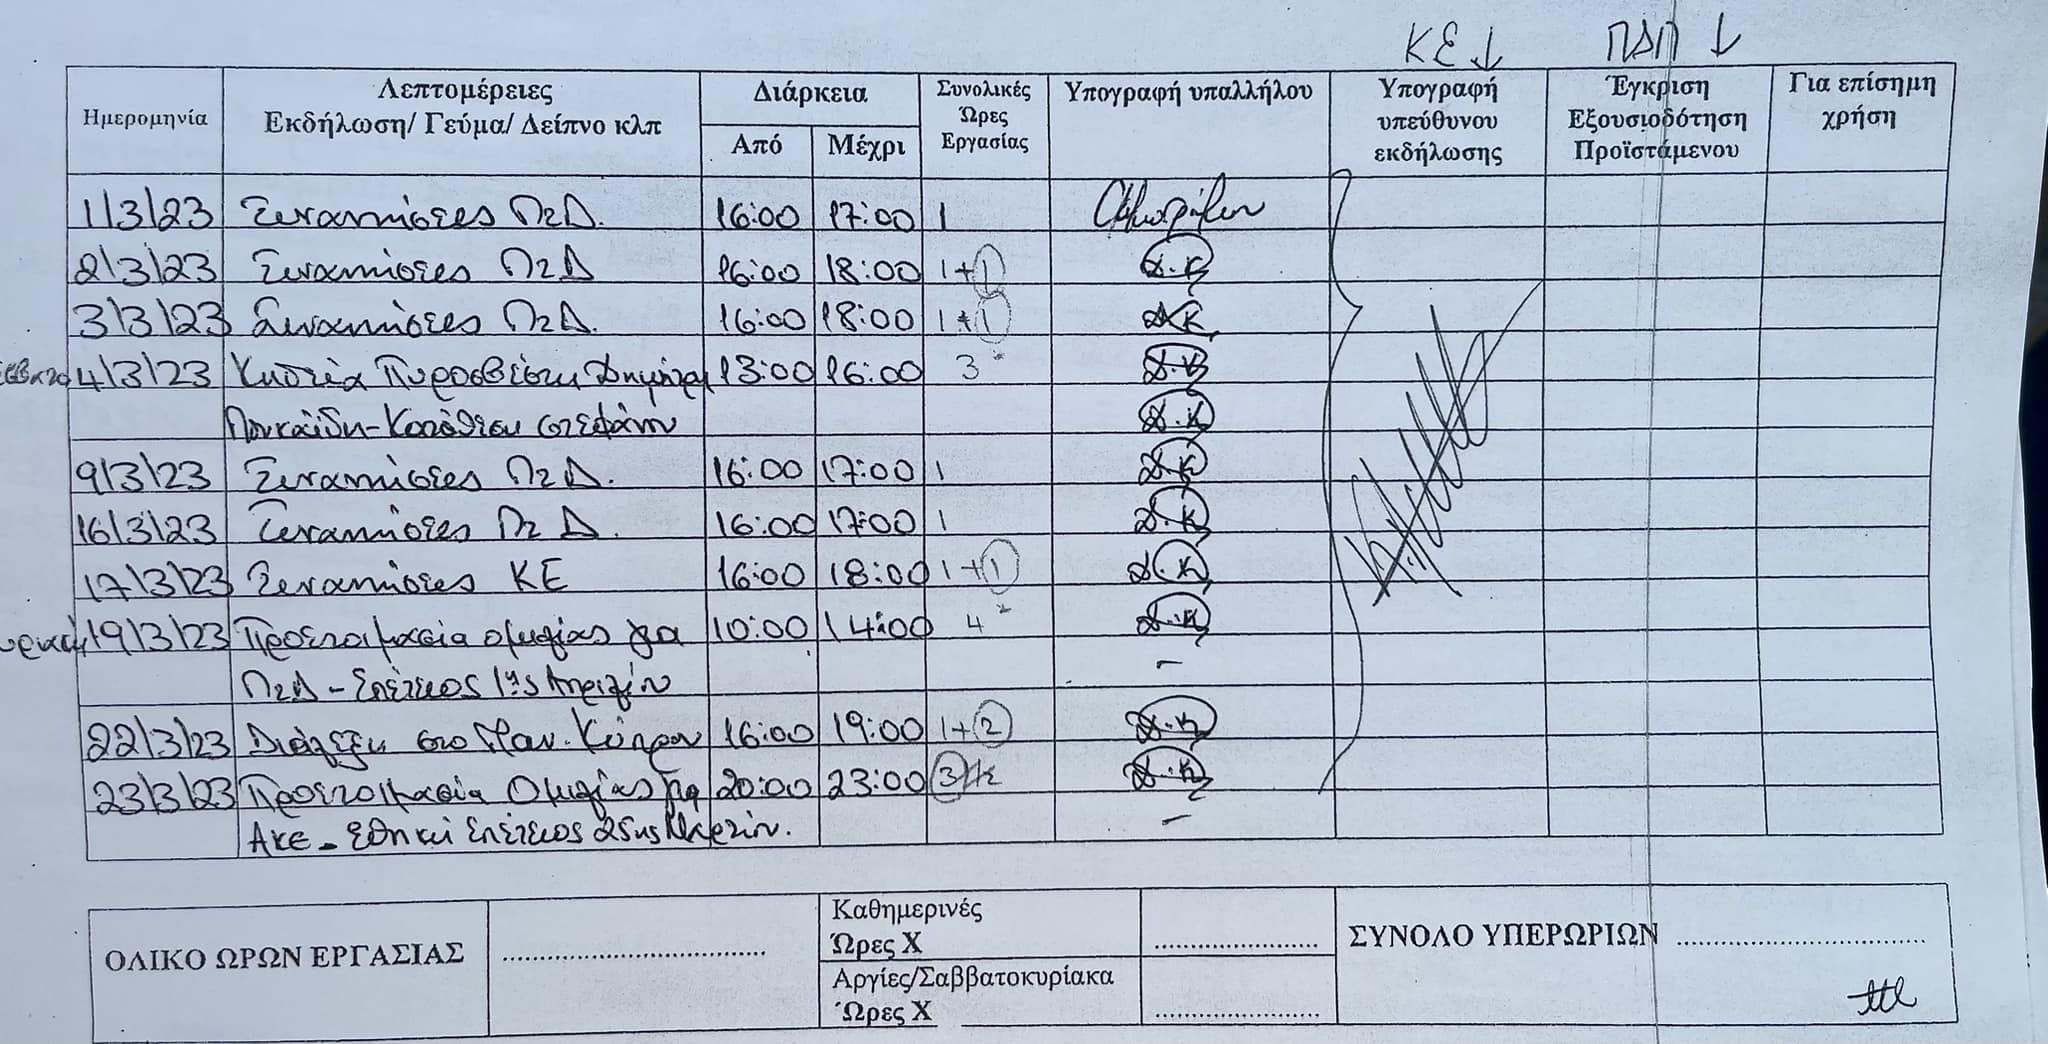 ΚΕ ↓ ΠΔΠ ↓
Ημερομηνία Λεπτομέρειες Εκδήλωση/ Γεύμα/ Δείπνο κλπ Διάρκεια Από Μέχρι Συνολικές Ώρες Εργασίας Υπογραφή υπαλλήλου Υπογραφή υπεύθυνου εκδήλωσης Έγκριση Εξουσιοδότηση Προϊστάμενου Για επίσημη χρήση
1/3/23 Συναντήσεις ΠΣΔ. 16:00 17:00 1
2/3/23 Συναντήσεις ΠΣΔ 16:00 18:00 1+1 Δ.Κ
3/3/23 Συναντήσεις ΠΣΔ. 16:00 18:00 1+1 ΔΚ
4/3/23 Κηδεία Πυροσβέστη 13:00 16:00 3 Δ.Κ
Κατάθεση στεφάνου Δ.Κ
9/3/23 Συναντήσεις ΠΣΔ. 16:00 17:00 1 Δ.Κ
16/3/23 Συναντήσεις ΠΣΔ. 16:00 17:00 1 Δ.Κ
17/3/23 Συναντήσεις ΚΕ 16:00 18:00 1+1 Δ.Κ
19/3/23 Προετοιμασία ομιλίας για 10:00 14:00 4* Δ.Κ
ΠΣΔ - Επέτειος 1ης Απριλίου –
22/3/23 Διάλεξη στο Παν. Κύπρου 16:00 19:00 1+2 Δ.Κ
23/3/23 Προετοιμασία Ομιλίας για 20:00 23:00 3 Δ.Κ
ΑΚΕ - Εθνική Επέτειος 25ης Μαρτίου. –
ΟΛΙΚΟ ΩΡΩΝ ΕΡΓΑΣΙΑΣ ............ Καθημερινές Ώρες Χ ............ ΣΥΝΟΛΟ ΥΠΕΡΩΡΙΩΝ ............
Αργίες/Σαββατοκύριακα Ώρες Χ ............